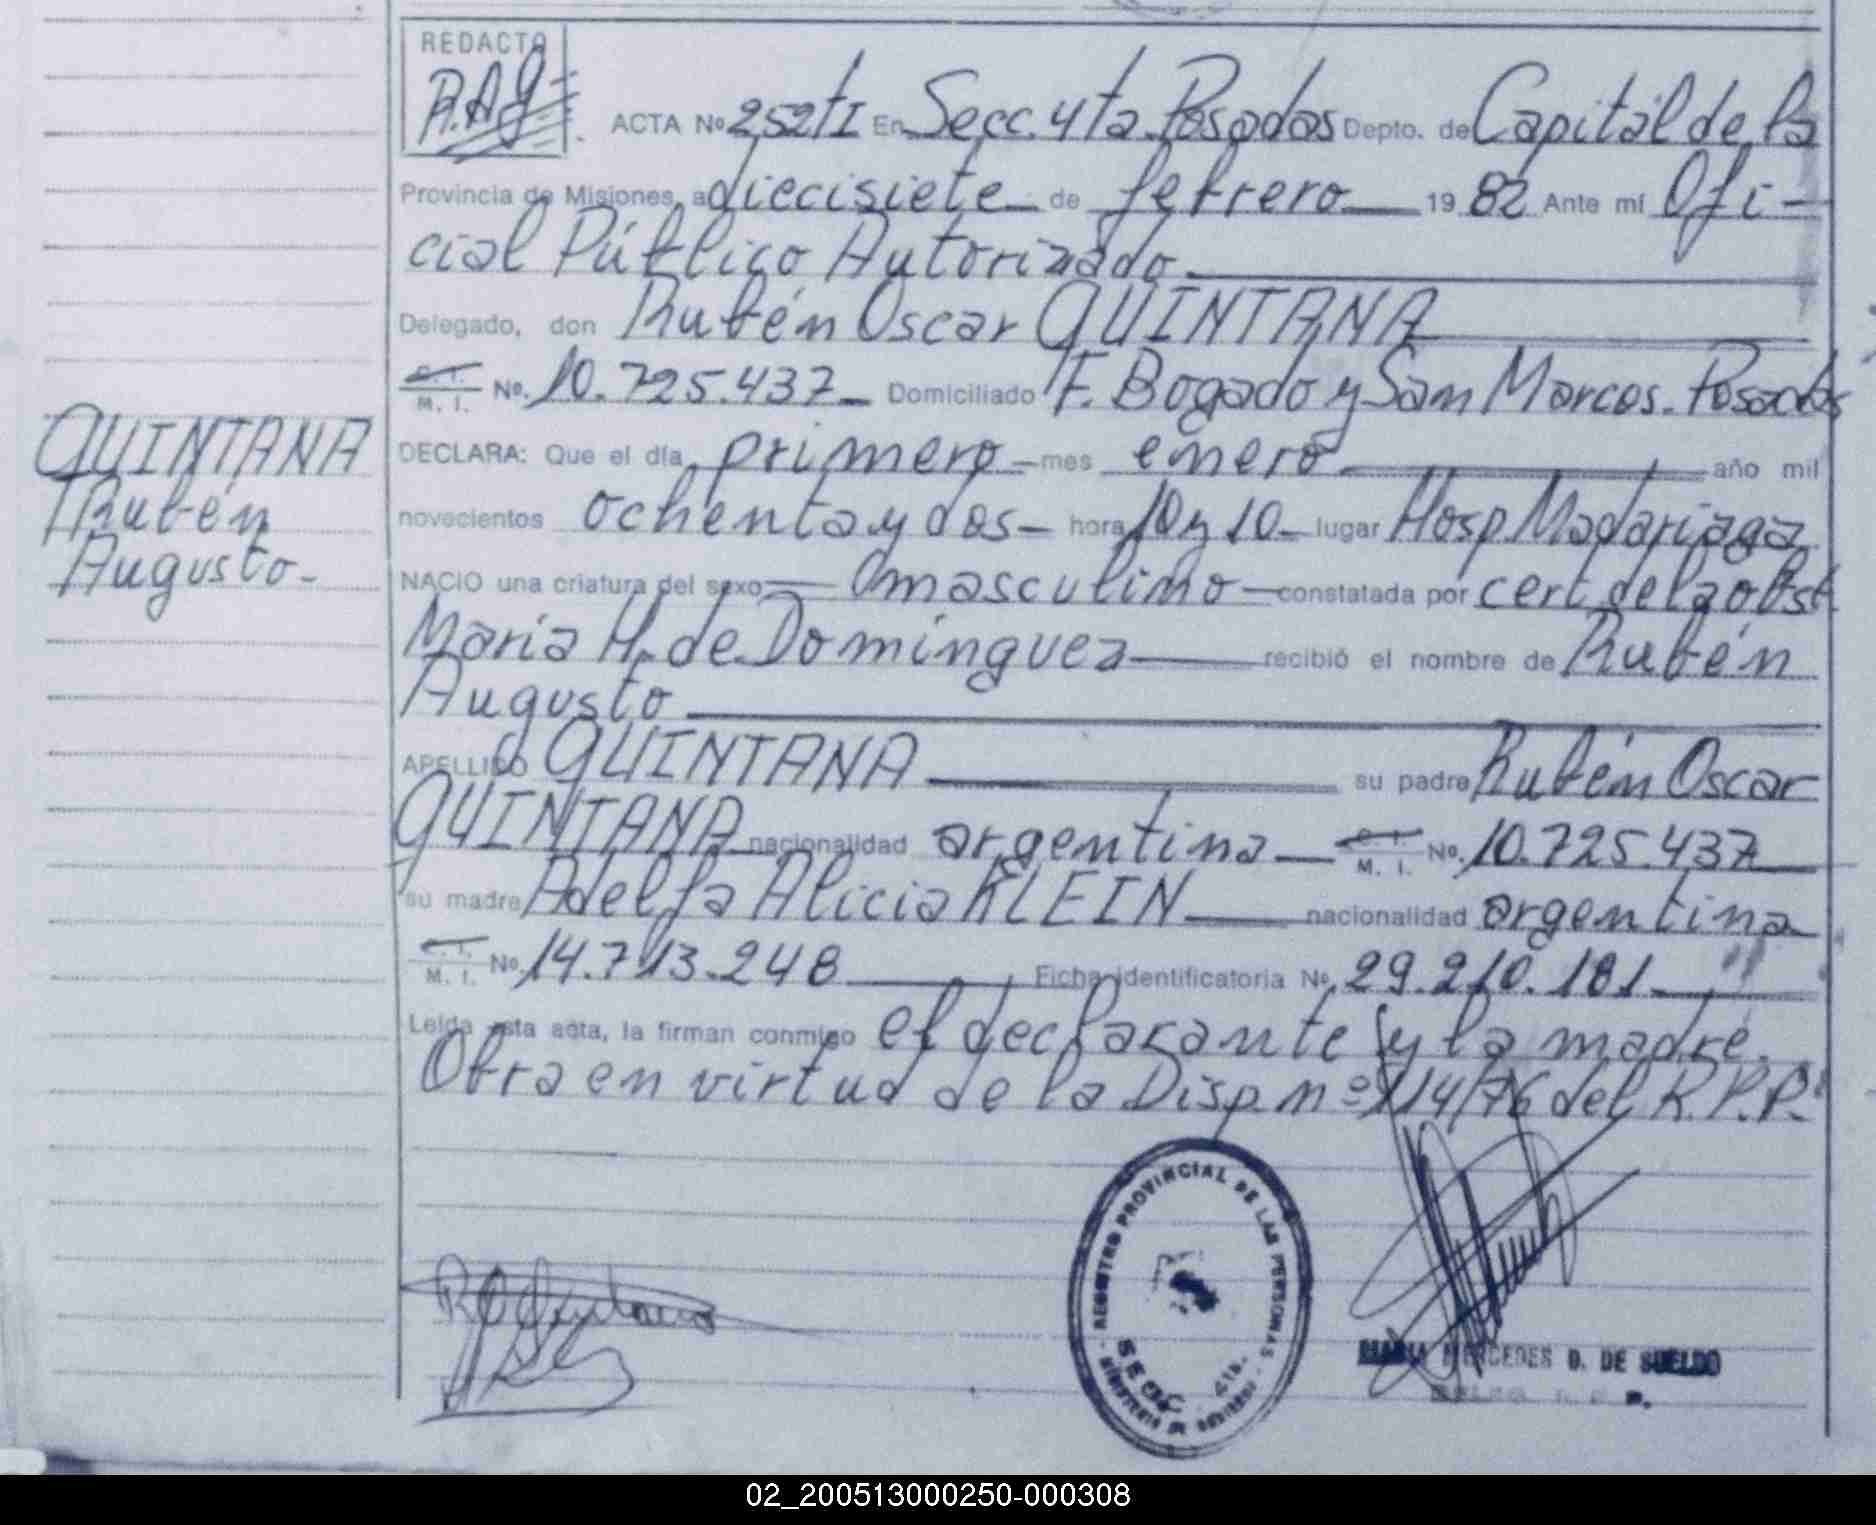 REDACTO
R.A.G.
ACTA Nº 252tI En Secc. 4ta. Posadas Depto. de Capital de la
Provincia de Misiones, a diecisiete de febrero 19 82 Ante mí Ofi-
cial Público Autorizado
Delegado, don Rubén Oscar QUINTANA
C. I.
M. I. Nº. 10.725.437 Domiciliado F. Bogado y San Marcos. Posadas
QUINTANA
Rubén
Augusto-
DECLARA: Que el día primero mes enero año mil
novecientos ochenta y dos hora 10 y 10 lugar Hosp Madariaga
NACIO una criatura del sexo masculino constatada por cert. de la obst
María H. de Domínguez recibió el nombre de Rubén
Augusto
APELLIDO QUINTANA su padre Rubén Oscar
QUINTANA nacionalidad argentina C. I.
M. I. Nº. 10.725.437
su madre Adelfa Alicia KLEIN nacionalidad argentina
C. I.
M. I. Nº. 14.713.248 Ficha identificatoria Nº. 29.210.181
Leida esta acta, la firman conmigo el declarante y la madre.
Obra en virtud de la Disp. nº 114/76 del R.P.P.
REGISTRO PROVINCIAL DE LAS PERSONAS
SECC. 4ta.
MINISTERIO DE GOBIERNO
MARIA MERCEDES D. DE SUELDO
02_200513000250-000308